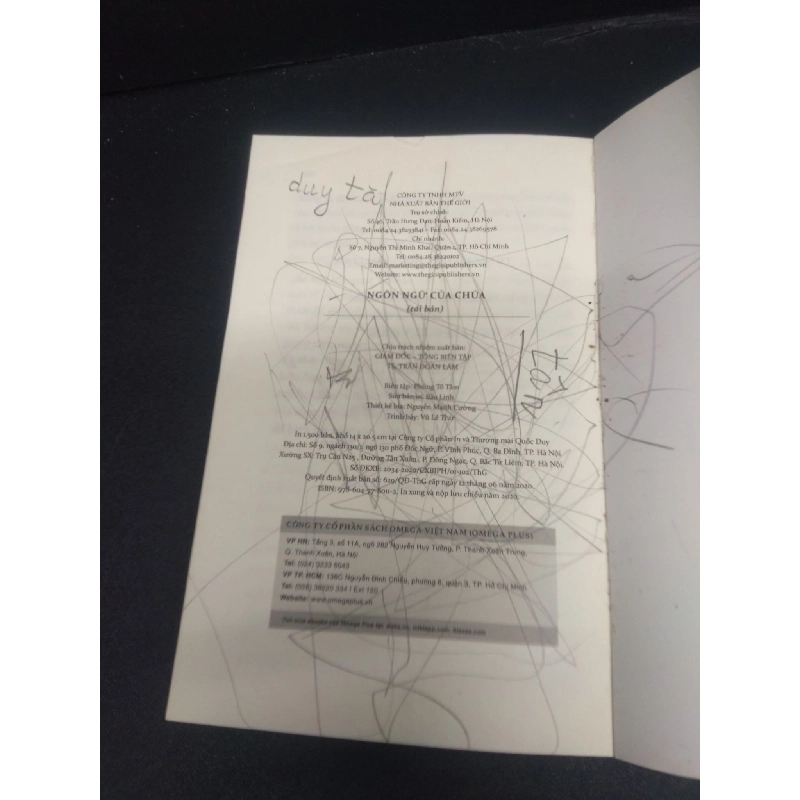 duy tâ
CÔNG TY TNHH MTV
NHÀ XUẤT BẢN THẾ GIỚI
Trụ sở chính:
Số 46, Trần Hưng Đạo, Hoàn Kiếm, Hà Nội
Tel: 0084.24.38253841 – Fax: 0084.24.38269578
Chi nhánh:
Số 7, Nguyễn Thị Minh Khai, Quận 1, TP. Hồ Chí Minh
Tel: 0084.28.38220102
Email: marketing@thegioipublishers.vn
Website: www.thegioipublishers.vn
NGÔN NGỮ CỦA CHÚA
(tái bản)
Chịu trách nhiệm xuất bản:
GIÁM ĐỐC – TỔNG BIÊN TẬP
TS. TRẦN ĐOÀN LÂM
tân
Biên tập: Phùng Tố Tâm
Sửa bản in: Bảo Linh
Thiết kế bìa: Nguyễn Mạnh Cường
Trình bày: Vũ Lệ Thư
In 1.500 bản, khổ 14 x 20.5 cm tại Công ty Cổ phần In và Thương mại Quốc Duy
Địa chỉ: Số 9, ngách 130/1, ngõ 130 phố Đốc Ngữ, P. Vĩnh Phúc, Q. Ba Đình, TP. Hà Nội.
Xưởng SX: Trụ Cầu N25, Đường Tân Xuân, P. Đông Ngạc, Q. Bắc Từ Liêm, TP. Hà Nội.
Số ĐKXB: 2034-2020/CXBIPH/01-102/ThG
Quyết định xuất bản số: 619/QĐ-ThG cấp ngày 12 tháng 06 năm 2020.
ISBN: 978-604-77-800-2. In xong và nộp lưu chiểu năm 2020.
CÔNG TY CỔ PHẦN SÁCH OMEGA VIỆT NAM (OMEGA PLUS)
VP HN: Tầng 3, số 11A, ngõ 282 Nguyễn Huy Tưởng, P. Thanh Xuân Trung,
Q. Thanh Xuân, Hà Nội
Tel: (024) 3233 6043
VP TP. HCM: 138C Nguyễn Đình Chiểu, phường 6, quận 3, TP. Hồ Chí Minh
Tel: (028) 38220 334 | Ext 120
Website: www.omegaplus.vn